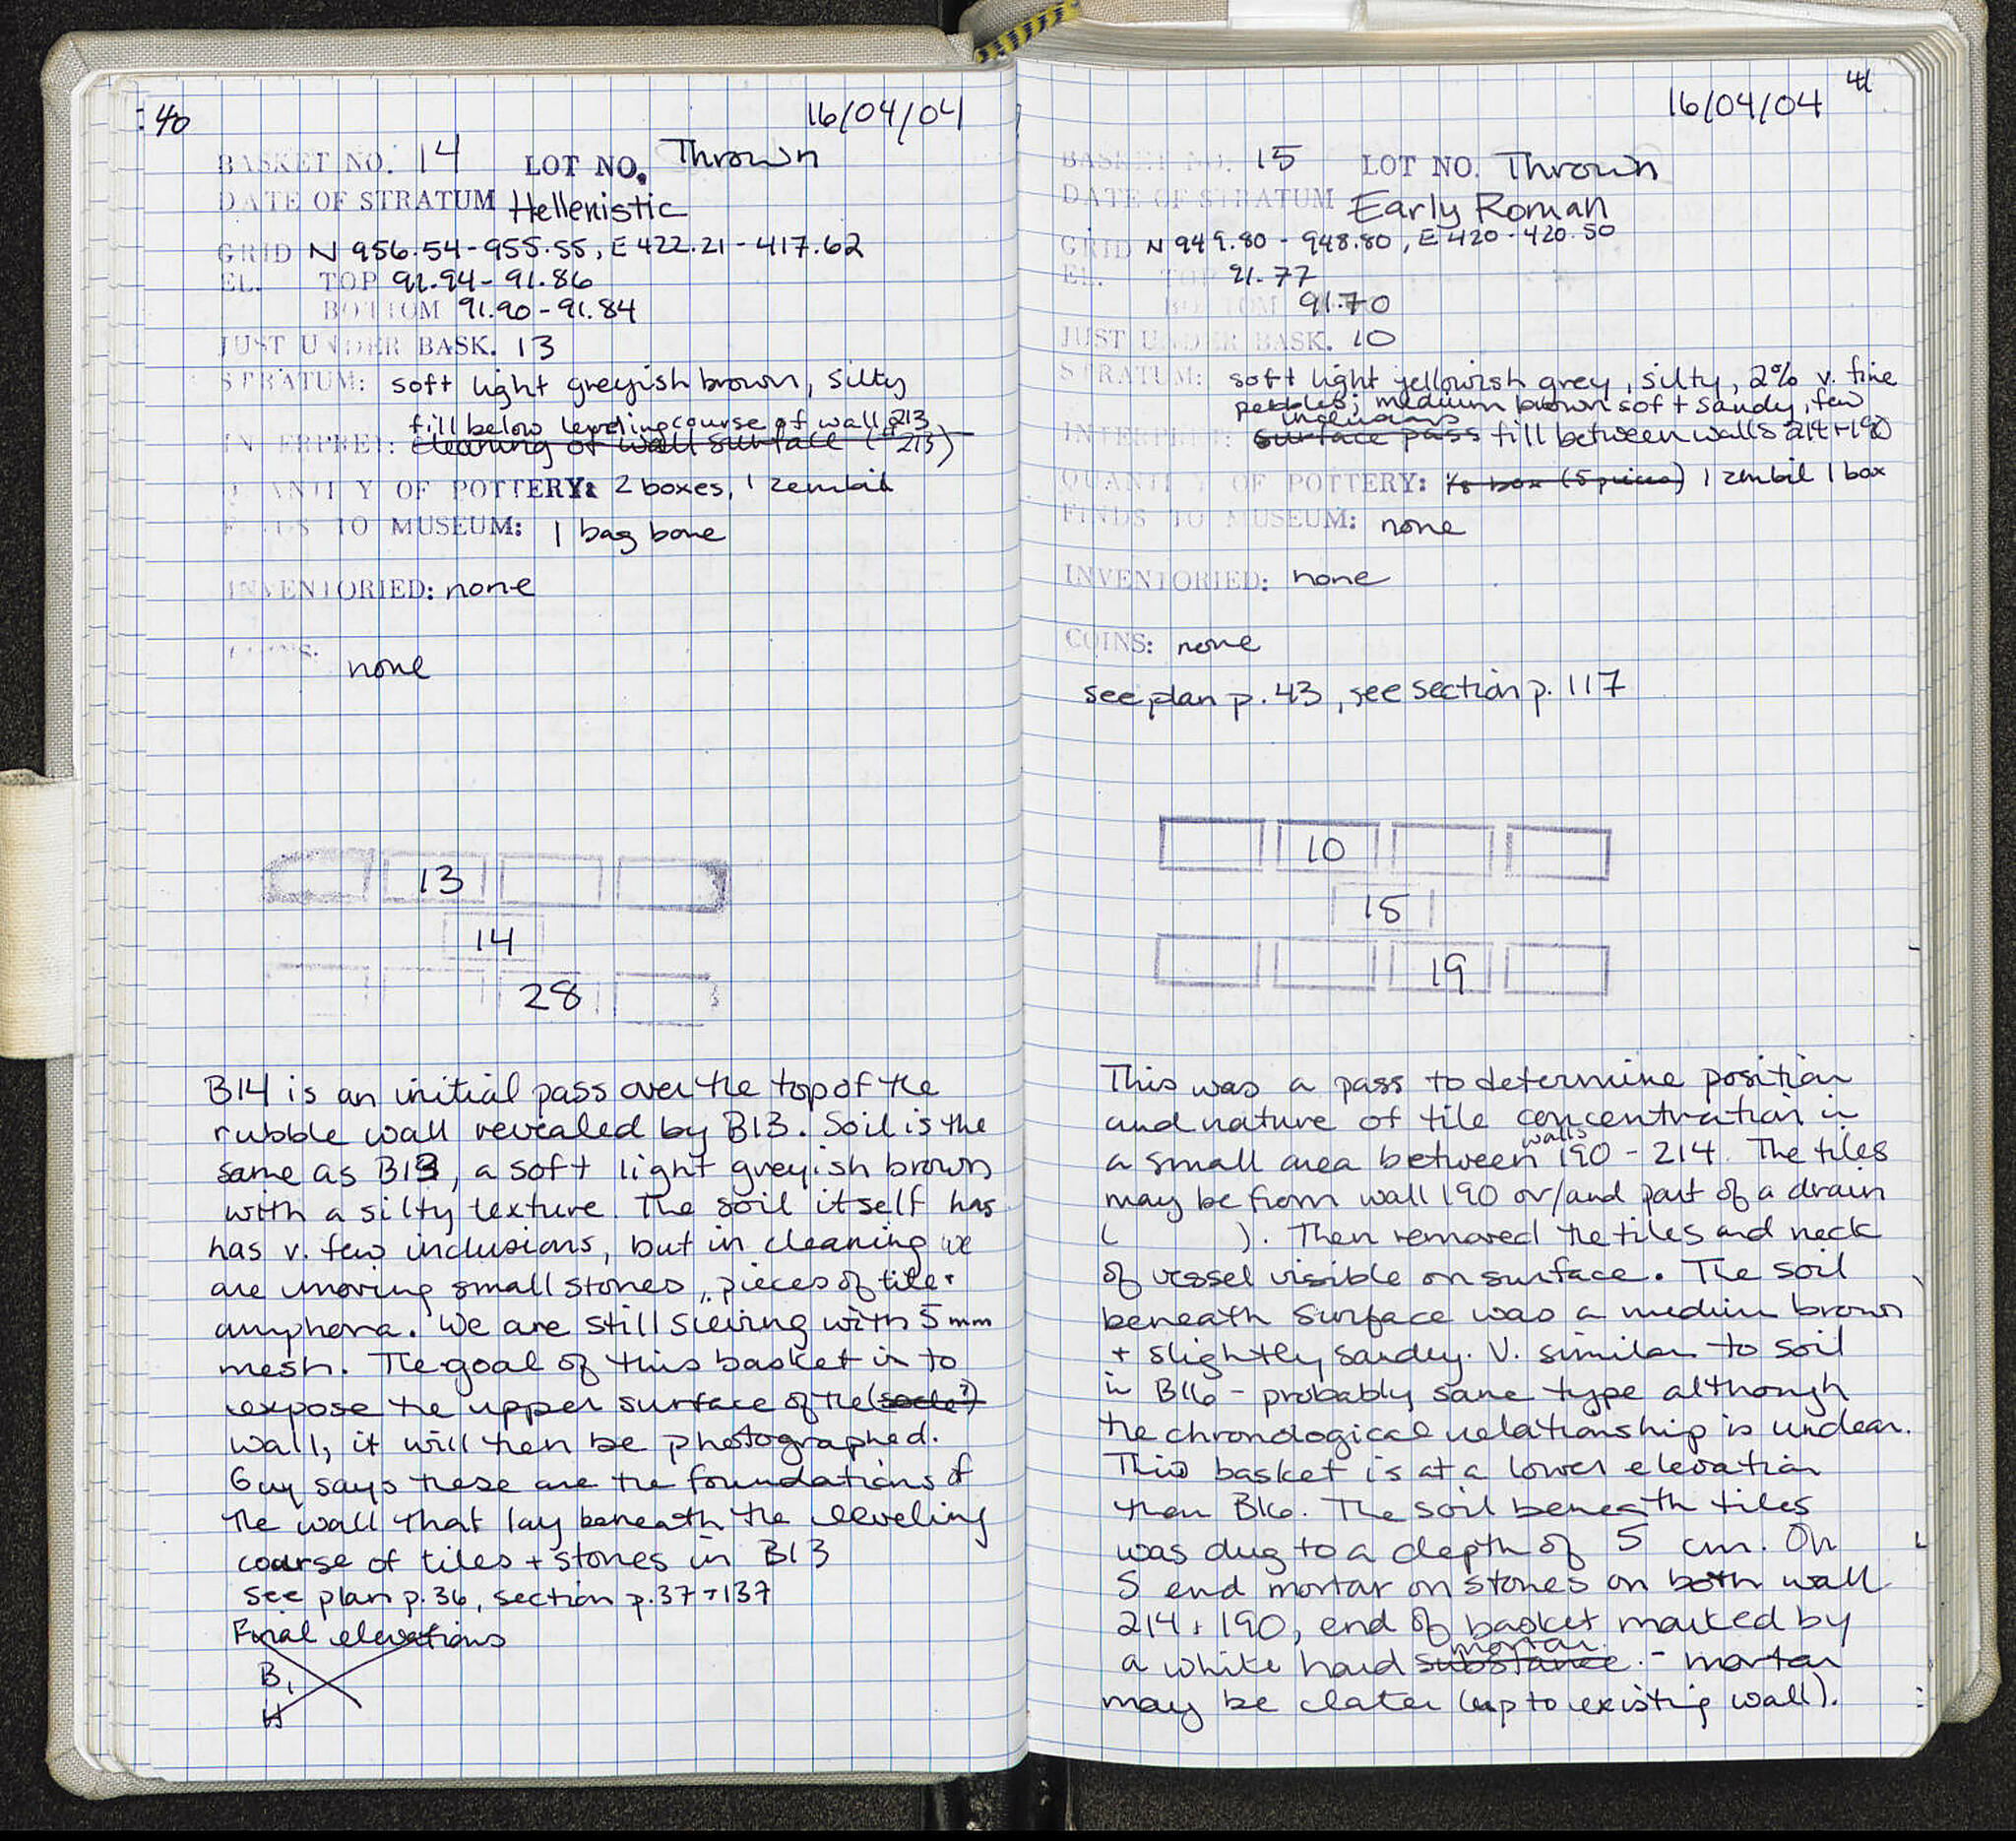 40
16/04/04
BASKET NO. 14 LOT NO. Thrown
DATE OF STRATUM Hellenistic
GRID N 956.54-955.55, E 422.21-417.62
EL. TOP 91.94-91.86
BOTTOM 91.90-91.84
JUST UNDER BASK. 13
STRATUM: soft light greyish brown, silty
fill below leveling course of wall 213
INTERPRET: cleaning of wall surface (#213)
QUANTITY OF POTTERY: 2 boxes, 1 zembil
FINDS TO MUSEUM: 1 bag bone
INVENTORIED: none
COINS:
none
13
14
28
B14 is an initial pass over the top of the
rubble wall revealed by B13. Soil is the
same as B13, a soft light greyish brown
with a silty texture. The soil itself has
has v. few inclusions, but in cleaning we
are moving small stones, pieces of tile +
amphora. We are still sieving with 5mm
mesh. The goal of this basket is to
expose the upper surface of the (socle?)
wall, it will then be photographed.
Guy says these are the foundations of
the wall that lay beneath the leveling
course of tiles + stones in B13
see plan p.36, section p.37+137
Final elevations
B,
H
41
16/04/04
BASKET NO. 15 LOT NO. Thrown
DATE OF STRATUM Early Roman
GRID N 949.80 - 948.80, E 420-420.50
EL. TOP 91.77
BOTTOM 91.70
JUST UNDER BASK. 10
STRATUM: soft light yellowish grey, silty, 2% v. fine
pebbles; medium brown soft sandy, few
inclusions
INTERPRET: surface pass fill between walls 214+190
QUANTITY OF POTTERY: 1/8 box (5 pieces) 1 zembil 1 box
FINDS TO MUSEUM: none
INVENTORIED: none
COINS: none
see plan p. 43, see section p. 117
10
15
19
This was a pass to determine position
and nature of tile concentration in
a small area between walls 190 - 214. The tiles
may be from wall 190 or/and part of a drain
( ). Then removed the tiles and neck
of vessel visible on surface. The soil
beneath surface was a medium brown
+ slightly sandy. V. similar to soil
in B16 - probably same type although
the chronological relationship is unclear.
This basket is at a lower elevation
than B16. The soil beneath tiles
was dug to a depth of 5 cm. On
S end mortar on stones on both wall
214 + 190, end of basket marked by
a white hard substance mortar. - mortar
may be later (up to existing wall).